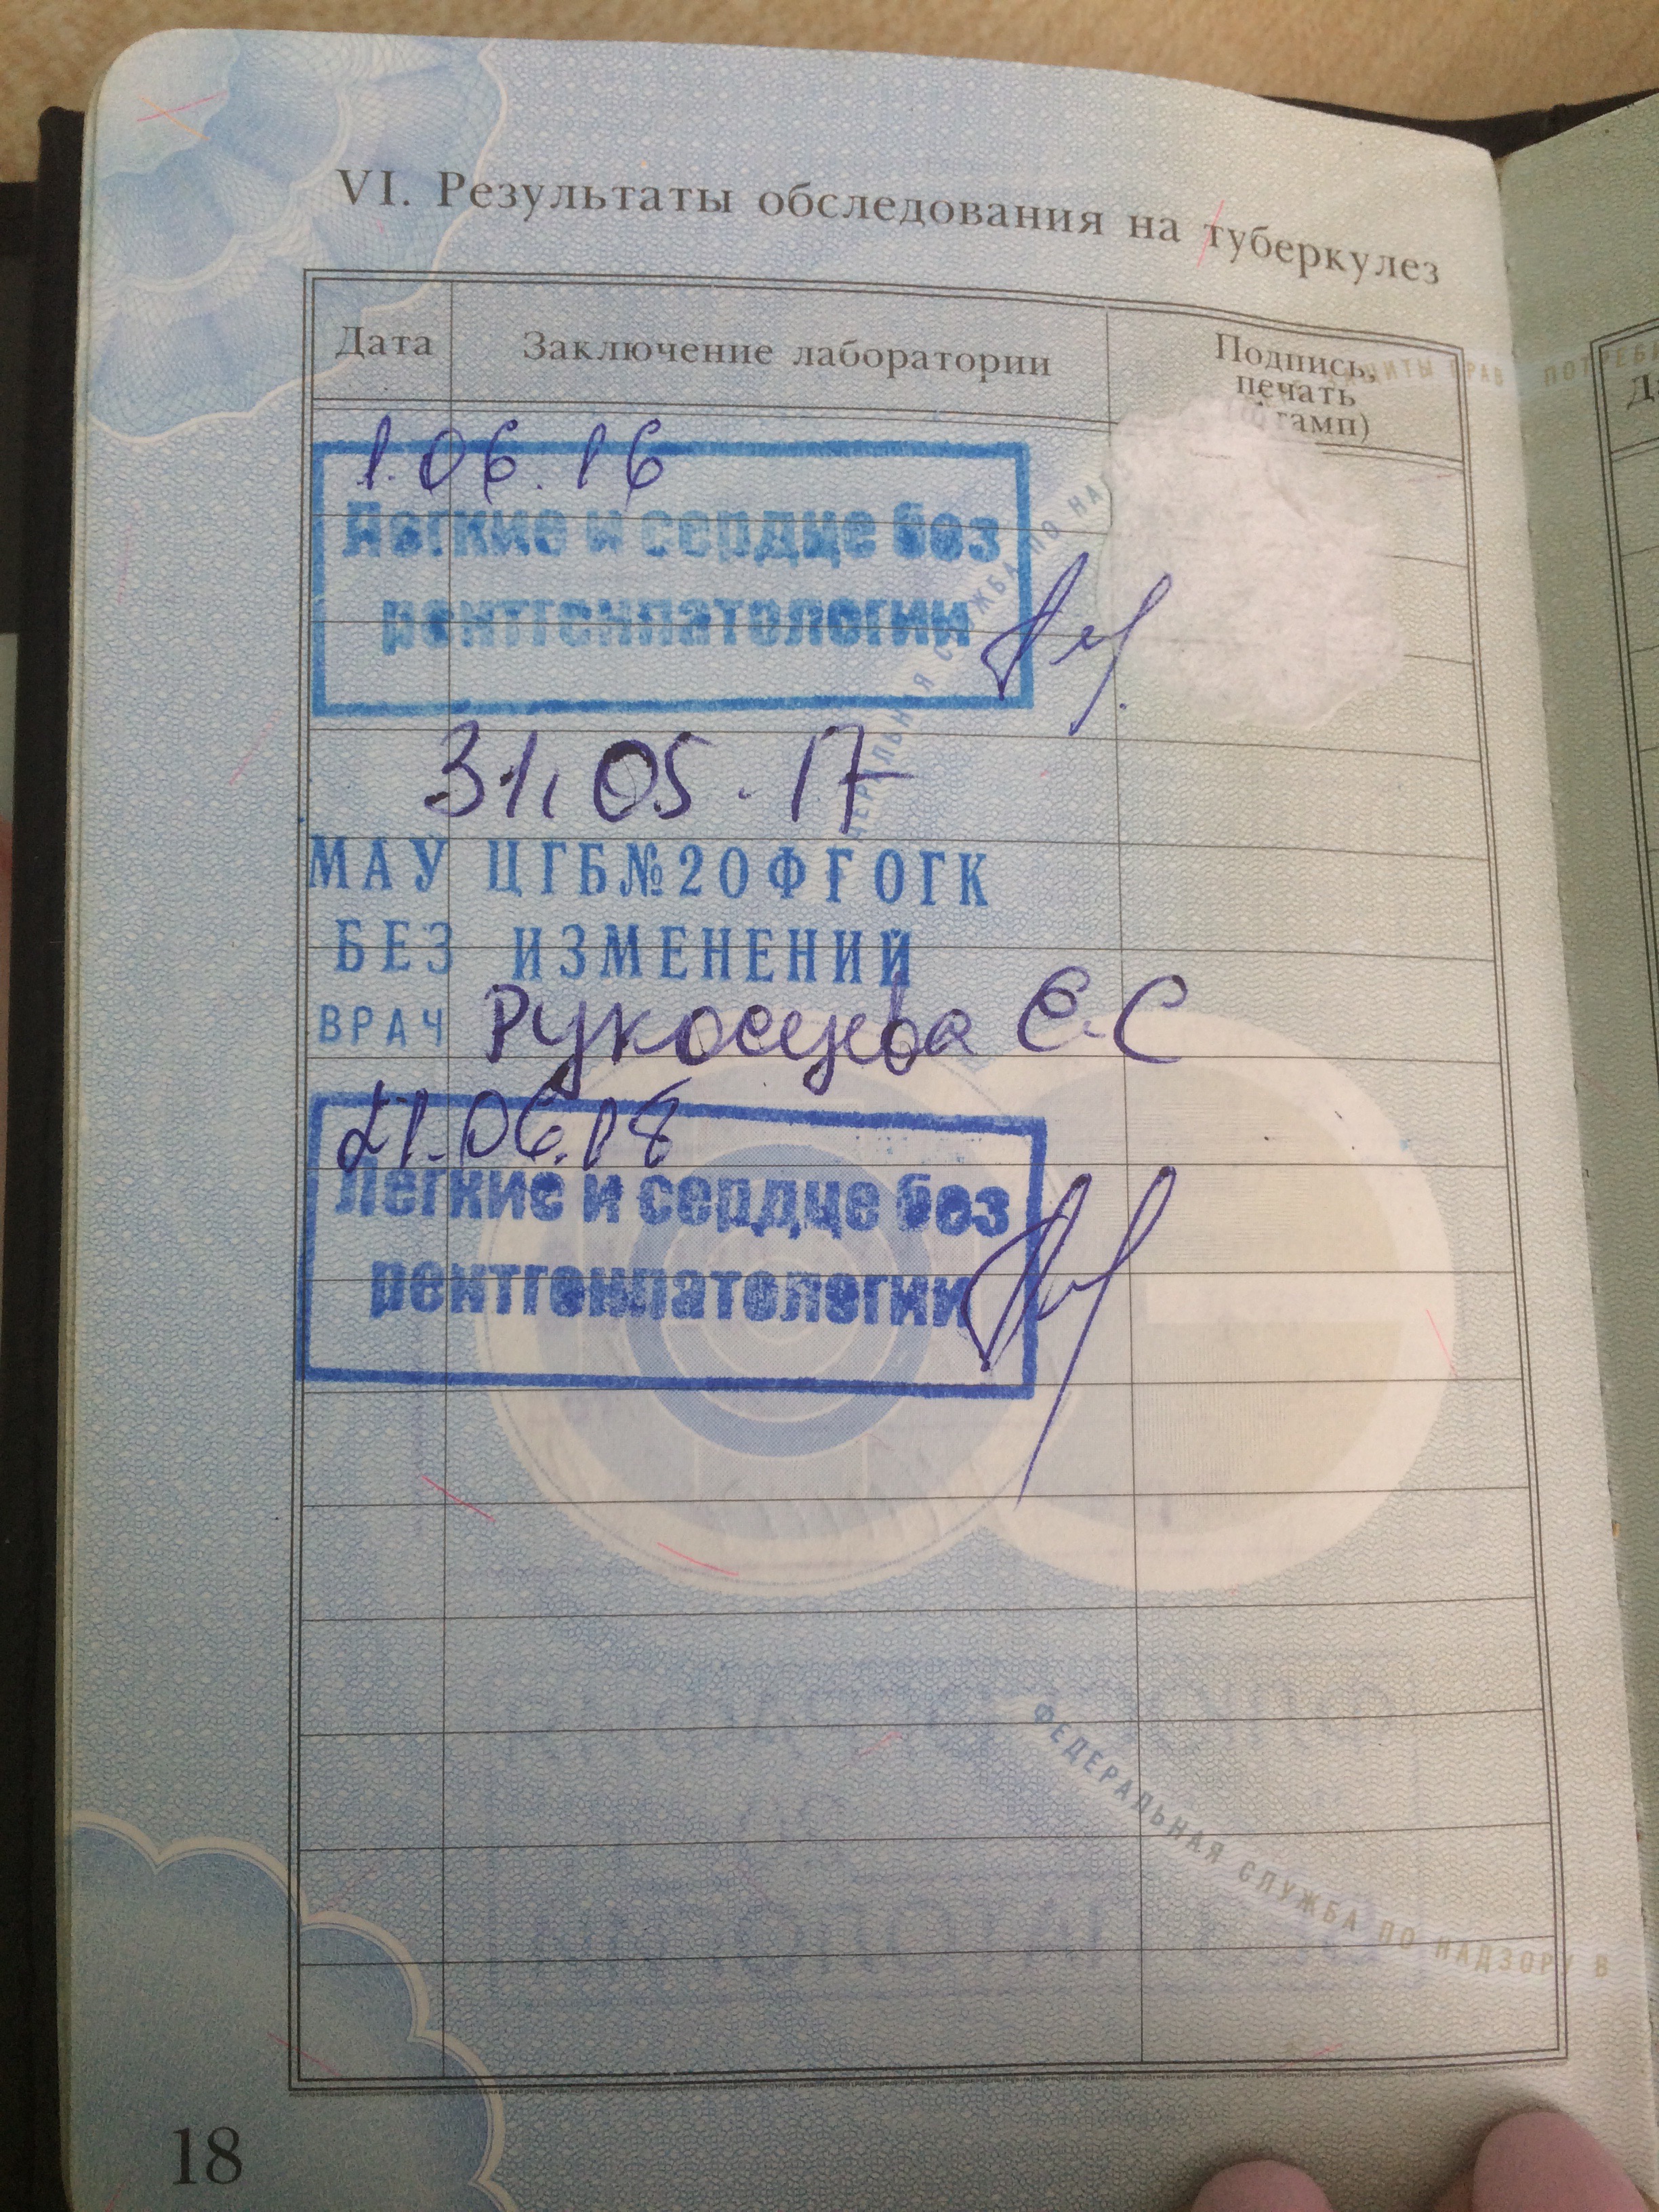 VI. Результаты обследования на туберкулез
Дата
Заключение лаборатории
Подпись,
печать
тамп)
1.06.16
Легкие и сердце без
рентгенпатологии
31.05.17
МАУ ЦГБ№20ФГОГК
БЕЗ ИЗМЕНЕНИЙ
ВРАЧ Рукосуева Е.С
21.06.18
Легкие и сердце без
рентгенпатологии
ФЕДЕРАЛЬНАЯ СЛУЖБА ПО НАДЗОРУ В
18